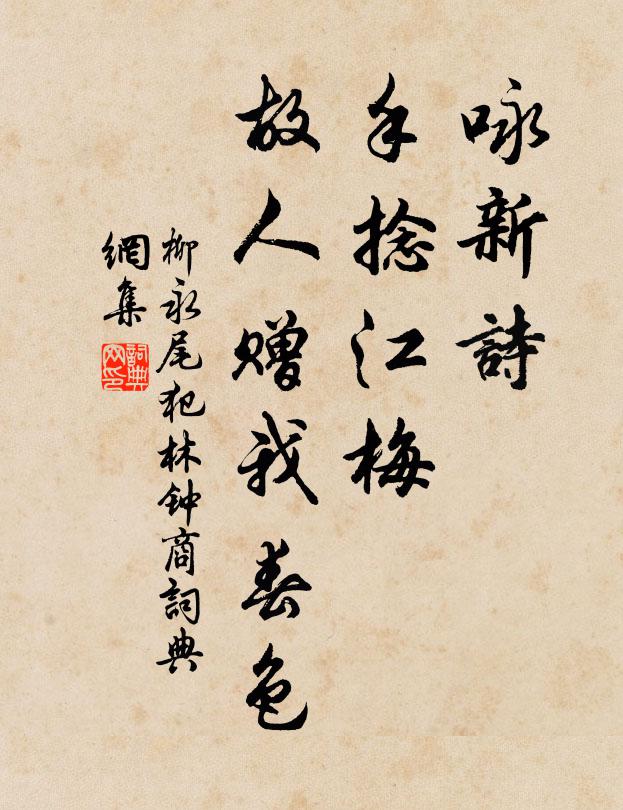 咏新詩
手捻江梅
故人赠我春色
柳永尾犯林钟商詞典
網集
詞典
网印